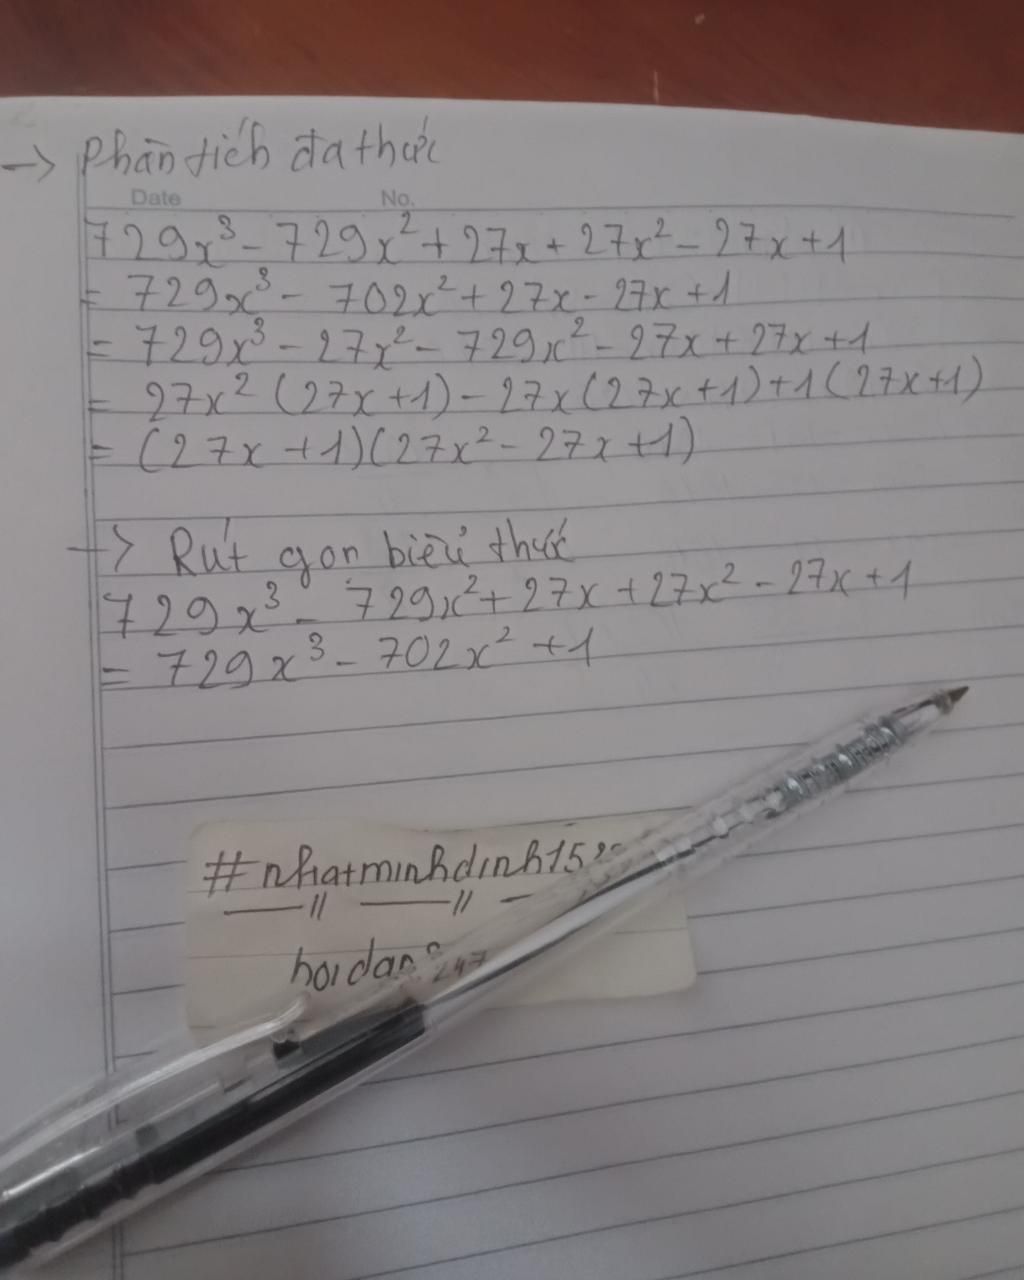 -> Phân tích đa thức
Date No.
729x³ - 729x² + 27x + 27x² - 27x + 1
= 729x³ - 702x² + 27x - 27x + 1
= 729x³ - 27x² - 729x² - 27x + 27x + 1
= 27x² (27x + 1) - 27x (27x + 1) + 1 (27x + 1)
= (27x + 1)(27x² - 27x + 1)
-> Rút gọn biểu thức
729x³ - 729x² + 27x + 27x² - 27x + 1
= 729x³ - 702x² + 1
#nhatminhdinh15
hoidap247